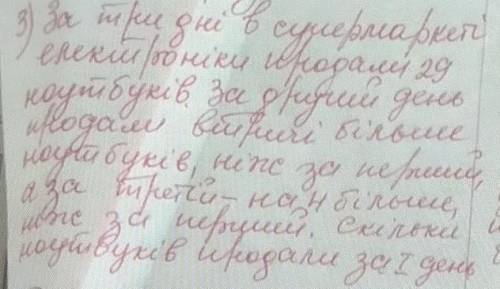 3) За три дні в супермаркеті
електроніки продали 29
ноутбуків. За другий день
продали втричі більше
ноутбуків, ніж за перший,
а за третій - на 4 більше,
ніж за перший. Скільки
ноутбуків продали за I день